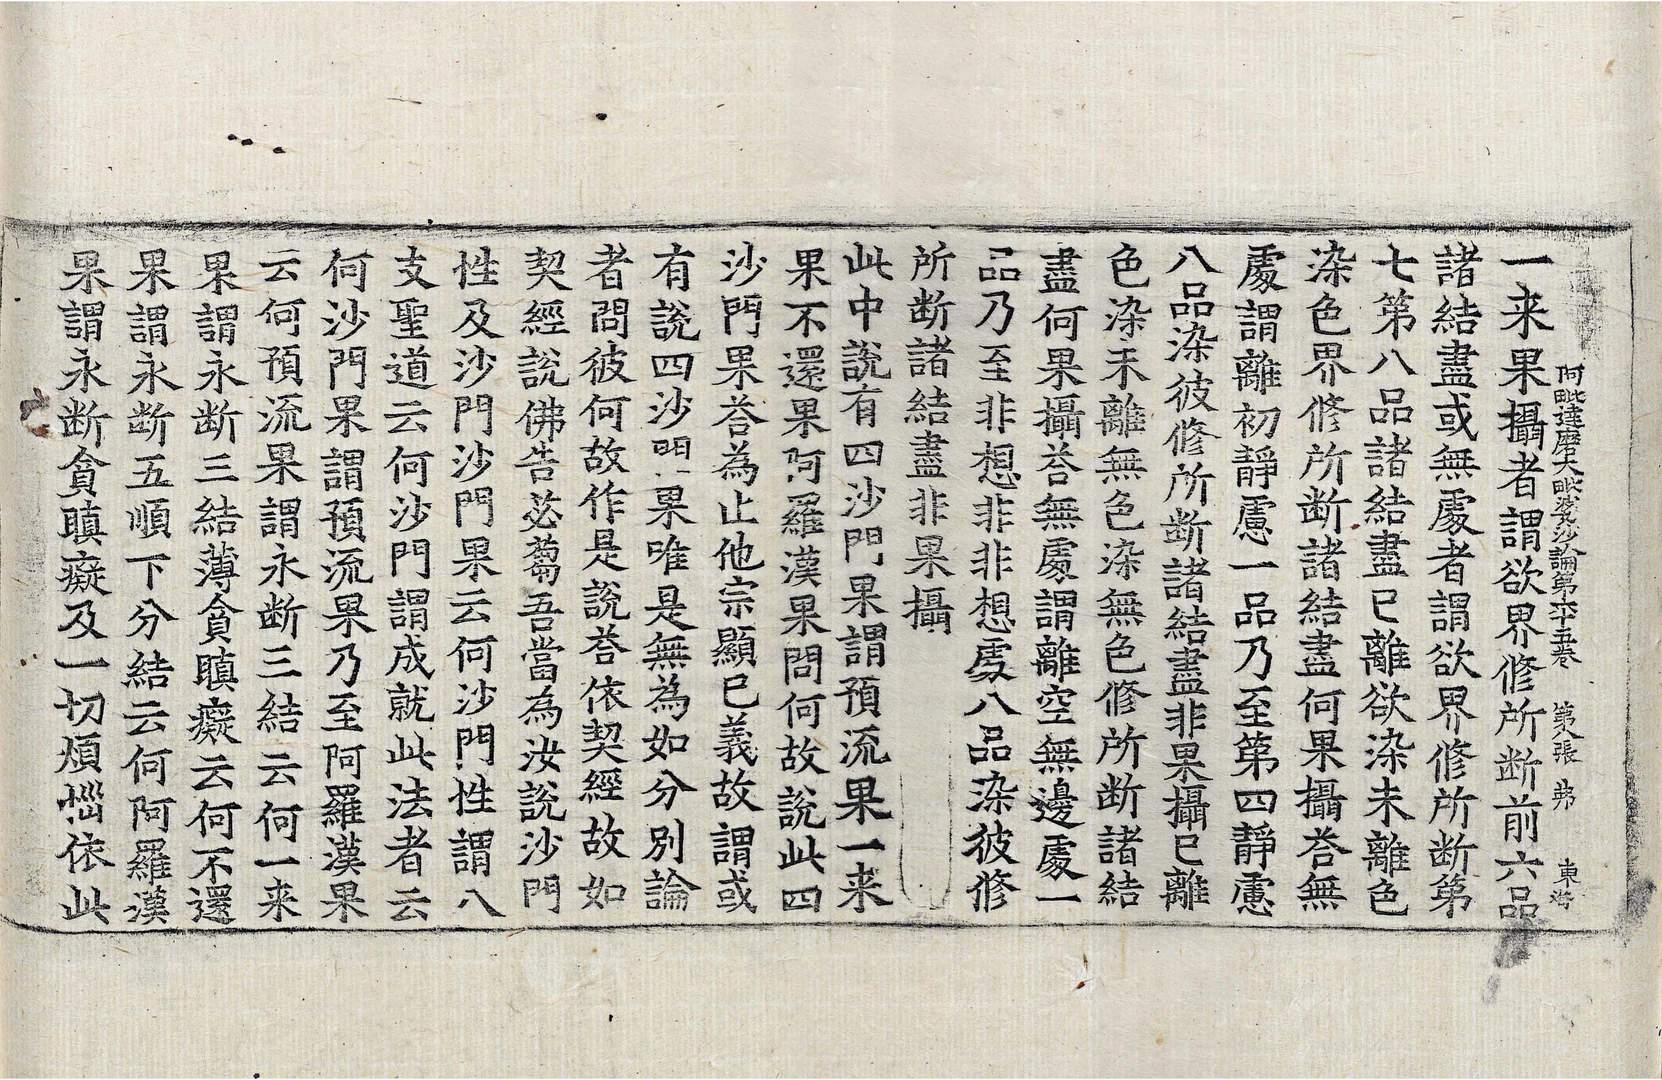 阿毗達磨大毗婆沙論第六十五卷 第六張 弗 東海
一来果攝者謂欲界修所断前六品
諸結盡或無處者謂欲界修所断第
七第八品諸結盡已離欲染未離色
染色界修所断諸結盡何果攝荅無
處謂離初靜慮一品乃至第四靜慮
八品染彼修所断諸結盡非果攝已離
色染未離無色染無色修所断諸結
盡何果攝荅無處謂離空無邊處一
品乃至非想非非想處八品染彼修
所断諸結盡非果攝
此中說有四沙門果謂預流果一来
果不還果阿羅漢果問何故說此四
沙門果荅為止他宗顯已義故謂或
有說四沙門果唯是無為如分別論
者問彼何故作是說荅依契經故如
契經說佛告苾蒭吾當為汝說沙門
性及沙門沙門果云何沙門性謂八
支聖道云何沙門謂成就此法者云
何沙門果謂預流果乃至阿羅漢果
云何預流果謂永断三結云何一来
果謂永断三結薄貪瞋癡云何不還
果謂永断五順下分結云何阿羅漢
果謂永断貪瞋癡及一切煩惱依此